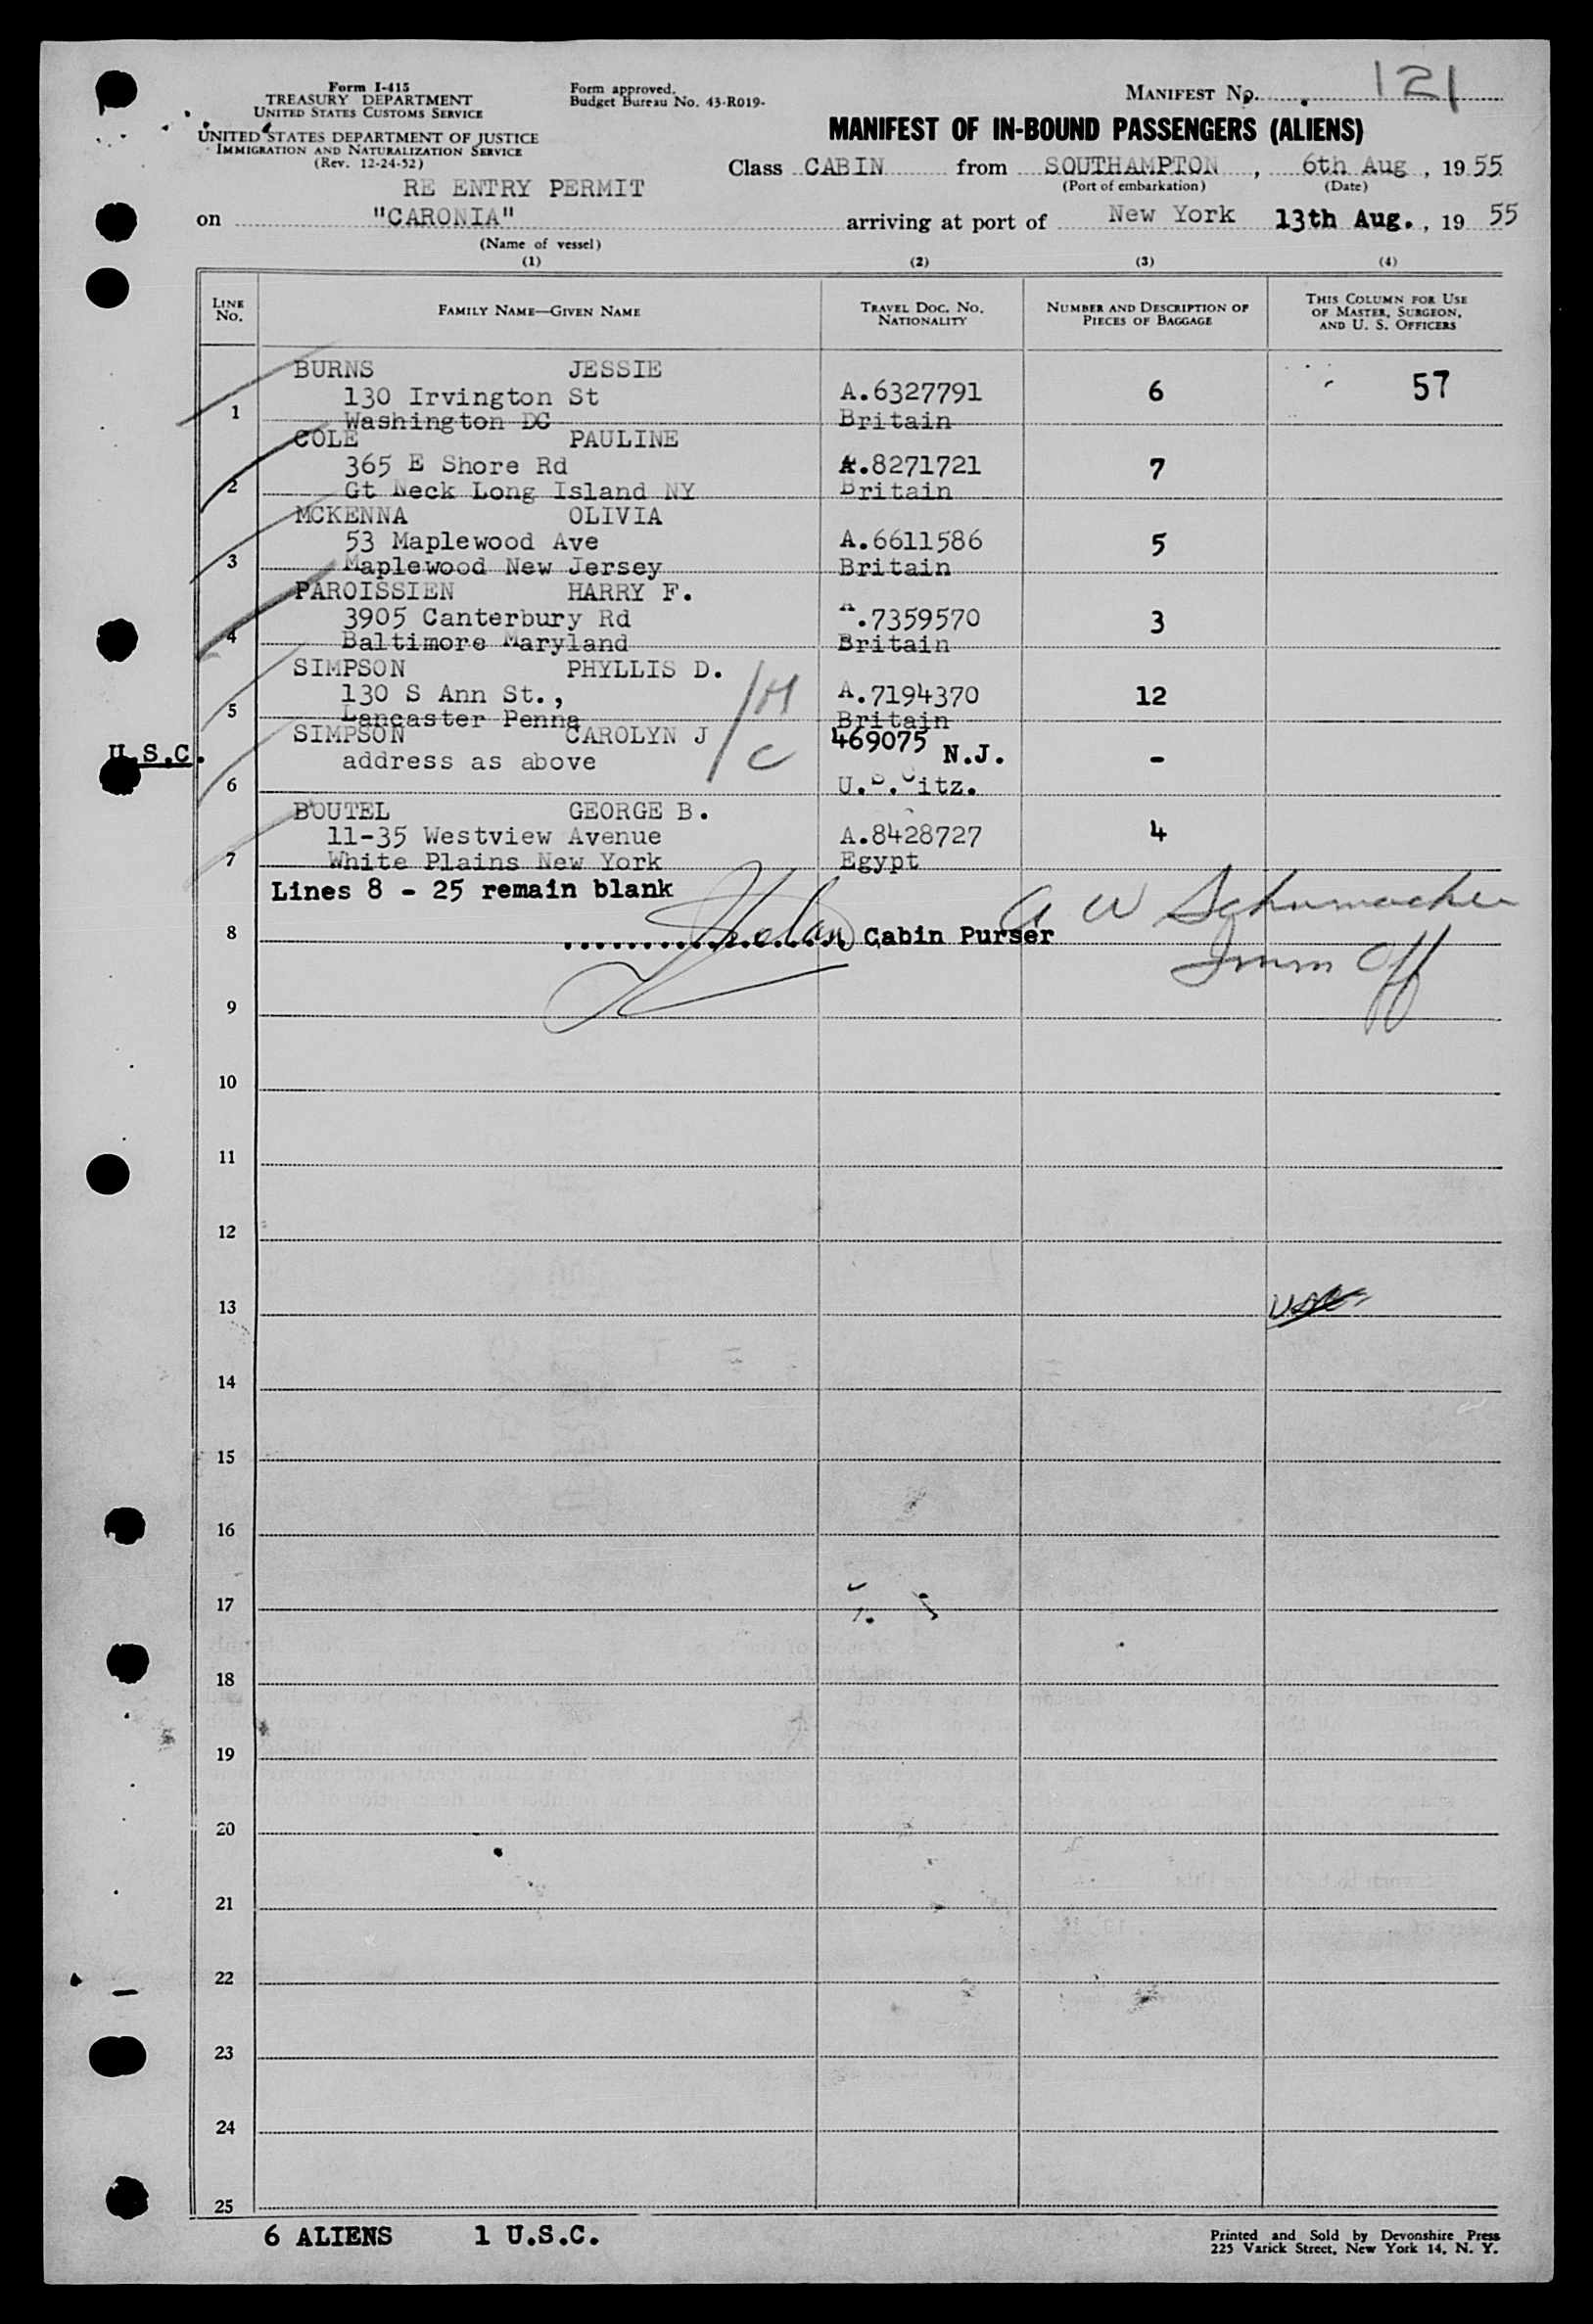 Form I-415
TREASURY DEPARTMENT
UNITED STATES CUSTOMS SERVICE
UNITED STATES DEPARTMENT OF JUSTICE
IMMIGRATION AND NATURALIZATION SERVICE
(Rev. 12-24-52)
Form approved.
Budget Bureau No. 43-R019-
MANIFEST No. 121
MANIFEST OF IN-BOUND PASSENGERS (ALIENS)
Class CABIN from SOUTHAMPTON, 6th Aug, 1955
(Port of embarkation) (Date)
RE ENTRY PERMIT
on "CARONIA" arriving at port of New York 13th Aug., 19 55
(Name of vessel)
(1) (2) (3) (4)
LINE No. FAMILY NAME—GIVEN NAME TRAVEL DOC. NO. NATIONALITY NUMBER AND DESCRIPTION OF PIECES OF BAGGAGE THIS COLUMN FOR USE OF MASTER, SURGEON, AND U. S. OFFICERS
BURNS JESSIE
130 Irvington St A.6327791 6 57
1 Washington DC Britain
COLE PAULINE
365 E Shore Rd A.8271721 7
2 Gt Neck Long Island NY Britain
MCKENNA OLIVIA
53 Maplewood Ave A.6611586 5
3 Maplewood New Jersey Britain
PAROISSIEN HARRY F.
3905 Canterbury Rd A.7359570 3
4 Baltimore Maryland Britain
SIMPSON PHYLLIS D. H
130 S Ann St., A.7194370 12
5 Lancaster Penna Britain
SIMPSON CAROLYN J 469075 N.J.
U.S.C. address as above C -
6 U.S.Citz.
BOUTEL GEORGE B.
11-35 Westview Avenue A.8428727 4
7 White Plains New York Egypt
Lines 8 - 25 remain blank
A W Schumacher
8 Cabin Purser
Imm Off
9
10
11
12
13
14
15
16
17
18
19
20
21
22
23
24
25
6 ALIENS 1 U.S.C.
Printed and Sold by Devonshire Press
225 Varick Street, New York 14, N. Y.